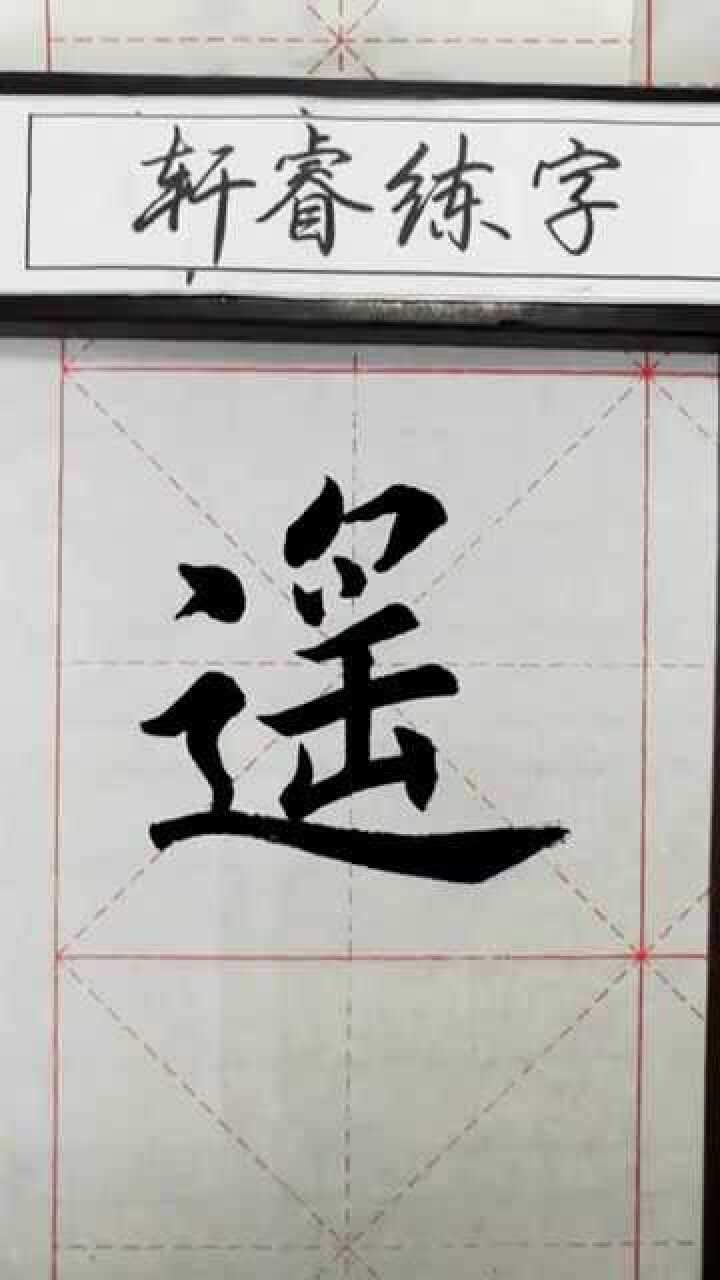 轩睿练字
遥